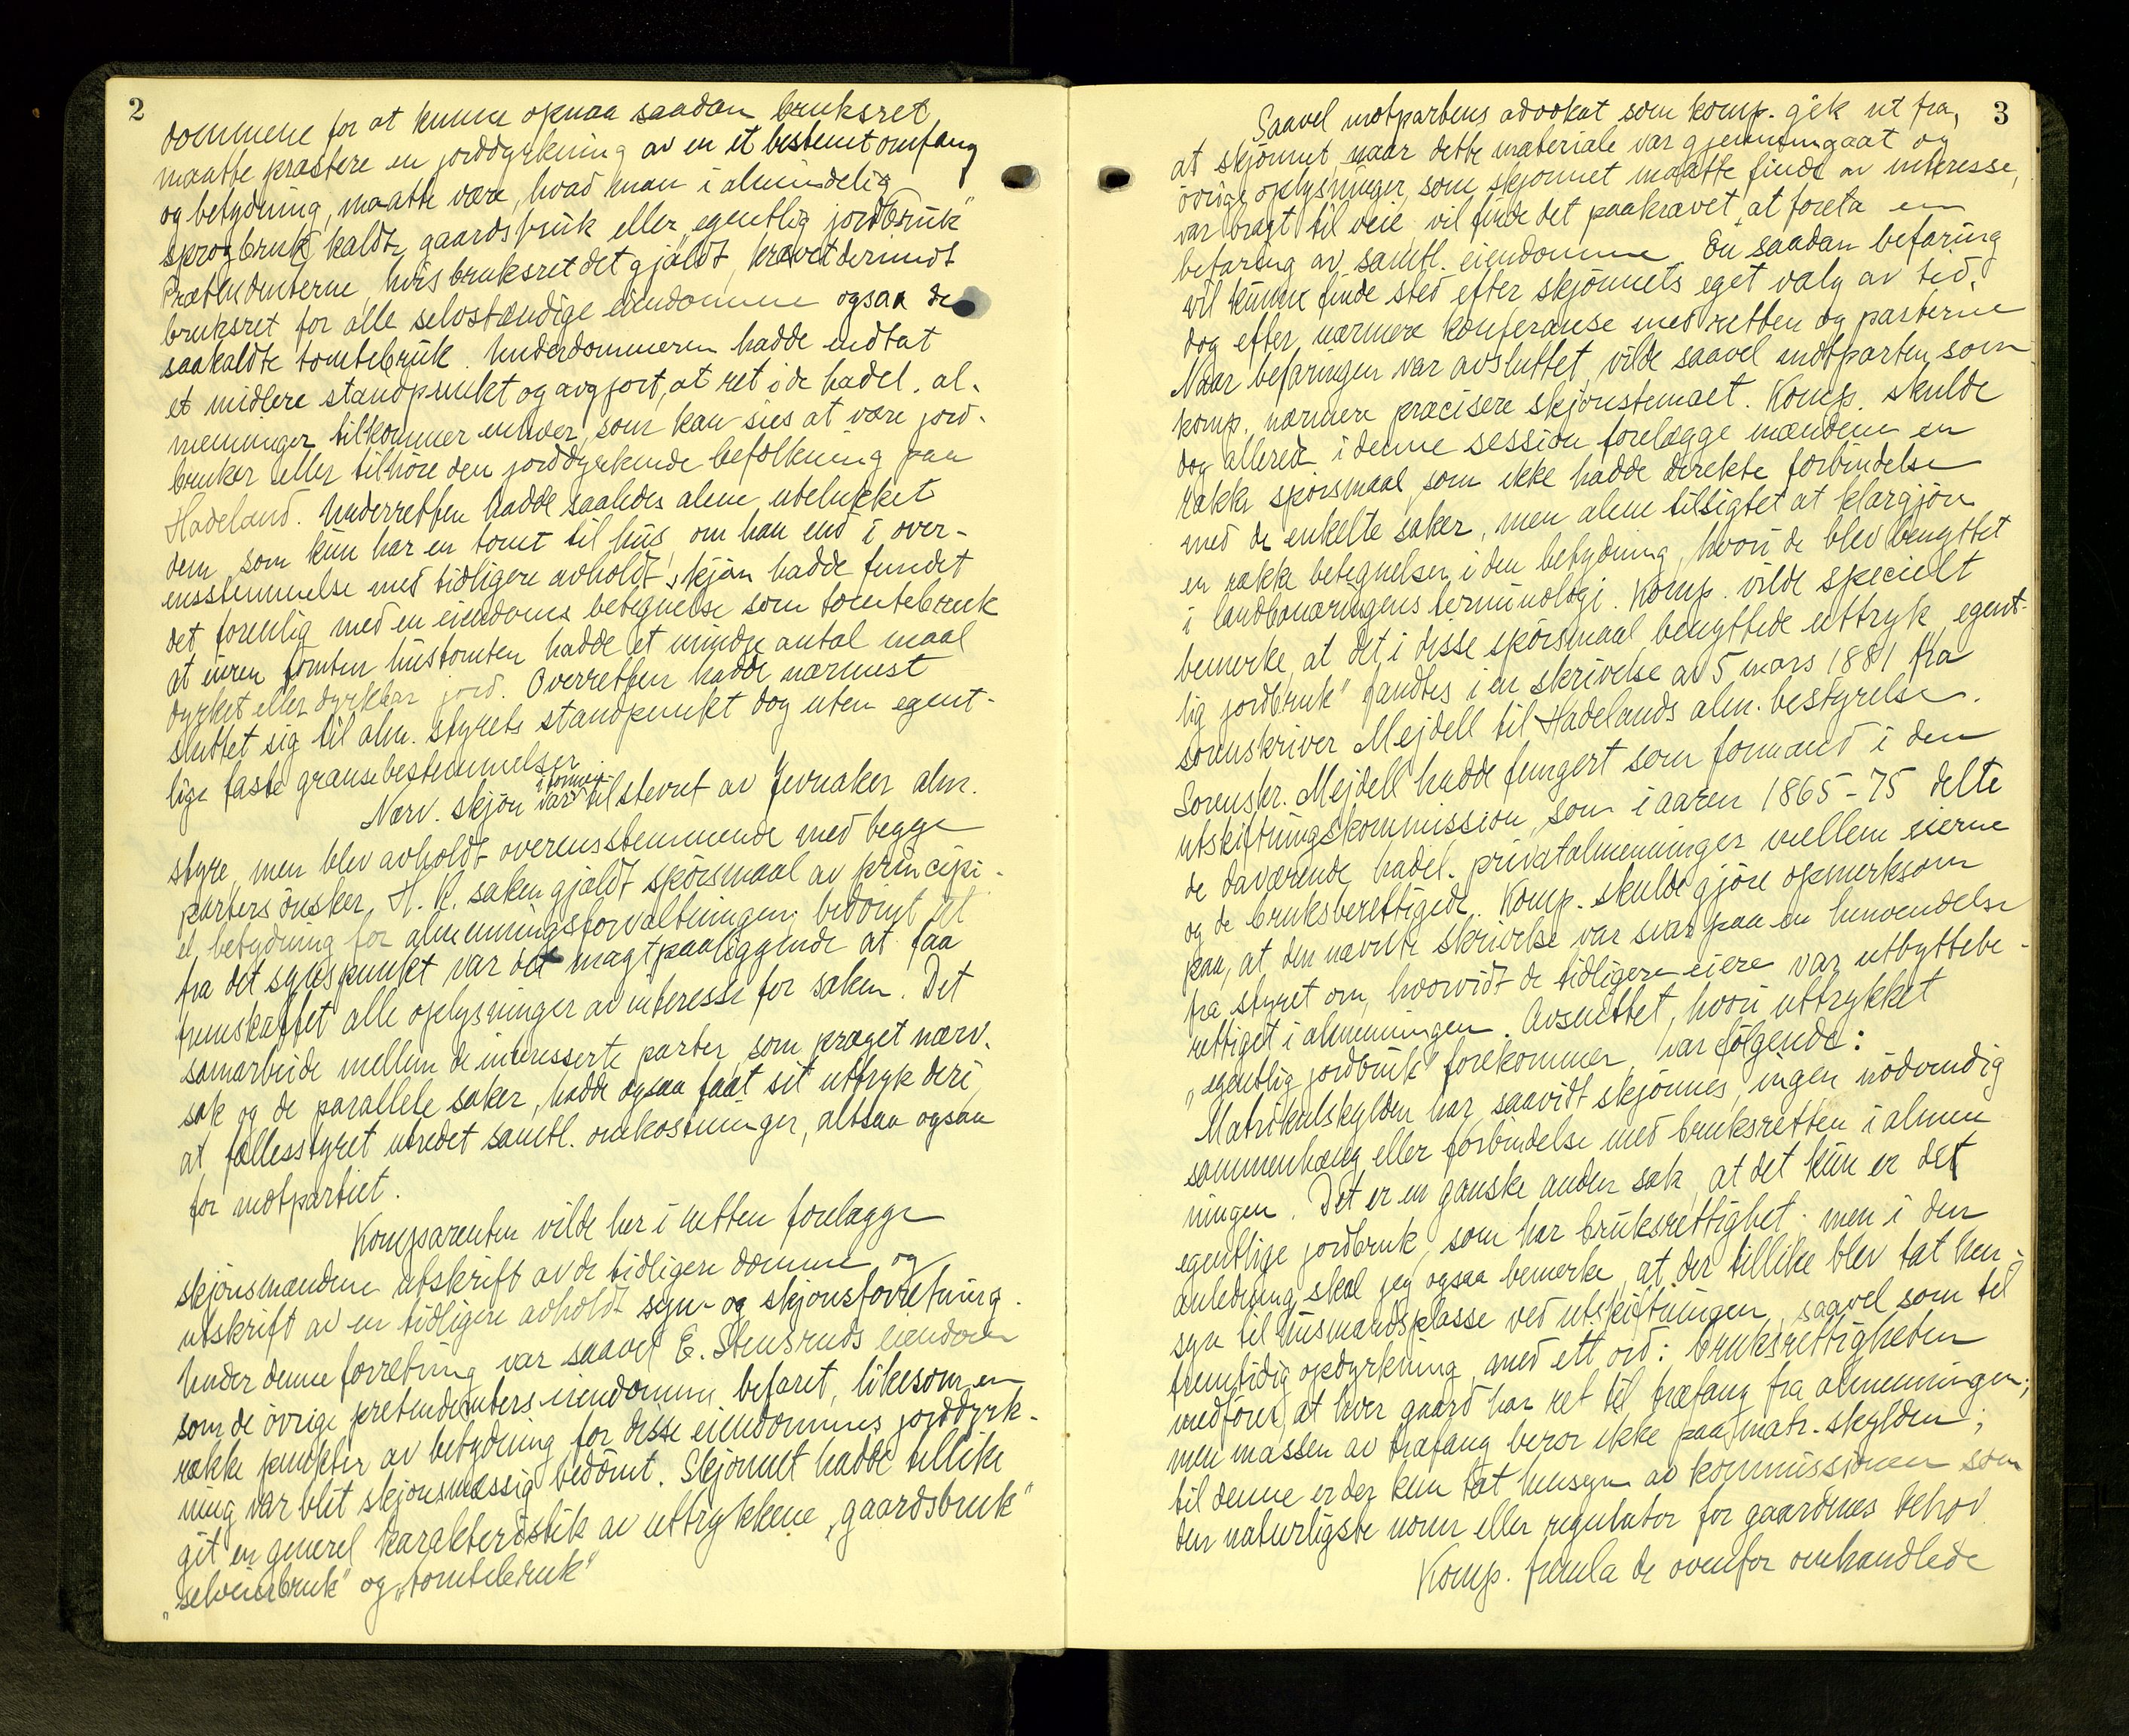 2
dommene for at kunne opnaa saadan bruksret
maatte præstere en jorddyrkning av en et bestemt omfang
og betydning, maatte være, hvad man i almindelig
sprogbruk kaldte gaardsbruk eller egentlig jordbruk"
Prætendenterne hvis bruksret det gjaldt, krævet derimot
bruksret for alle selvstændige eiendomme ogsaa de
saakaldte tomtebruk. Underdommeren hadde indtat
et midlere standpunkt og avgjort, at ret i de hadel. al-
menninger tilkommer enhver, som kan sies at være jord-
bruker eller tilhöre den jorddyrkende befolkning paa
Hadeland. Underretten hadde saaledes alene utelukket
dem, som kun har en tomt til hus, om han end i over-
ensstemmelse med tidligere avholdt skjön hadde fundet
det forenlig med en eiendoms betegnelse som tomtebruk
at eieren foruten hustomten hadde et mindre antal maal
dyrket eller dyrkbar jord. Overretten hadde nærmest
sluttet sig til alm. styrets standpunkt dog uten egent-
lige faste grænsebestemmelser.
Nærv. skjön var i former tilstevnet av Jevnaker alm.
styre, men blev avholdt overensstemmende med begge
parters önsker. H. R. saken gjaldt spörsmaal av principi-
el betydning for almenningsforvaltningen; bedömt ut
fra det synspunkt var det magtpaaliggende at faa
fremskaffet alle oplysninger av interesse for saken. Det
samarbeide mellem de interesserte parter, som præget nærv.
sak og de parallele saker, hadde ogsaa faat sit uttryk deri,
at fællesstyret utredet samtl. omkostninger, altsaa ogsaa
for motpartiet.
Komparenten vilde her i retten forelægge
skjönsmændene utskrift av de tidligere domme og
utskrift av en tidligere avholdt syn- og skjönsforretning.
Under denne forretning var saavel E. Stensruds eiendom
som de övrige pretendenters eiendomme befaret, likesom en
række punkter av betydning for disse eiendommes jorddyrk-
ning var blit skjönsmæssig bedömt. Skjönnet hadde tillike
git en generel karakteristik av uttrykkene „gaardsbruk"
„selveierbruk" og „tomtebruk"
3
Saavel motpartens advokat som komp. gik ut fra,
at skjönnet naar dette materiale var gjennemgaat og
övrige oplysninger, som skjönnet maatte finde av interesse,
var bragt til veie vil finde det paakrævet, at foreta en
befaring av samtl. eiendomme. En saadan befaring
vil kunne finde sted efter skjönnets eget valg av tid,
dog efter nærmere konferanse med retten og parterne
Naar befaringen var avsluttet vilde saavel motparten som
komp. nærmere præcisere skjönstemaet. Komp. skulde
dog allerede i denne session forelægge mændene en
række spörsmaal, som ikke hadde direkte forbindelse
med de enkelte saker, men alene tilsigtet at klargjöre
en række betegnelser i den betydning, hvori de blev benyttet
i landbonæringens terminologi. Komp. vilde specielt
bemerke, at det i disse spörsmaal benyttede uttryk „egent-
lig jordbruk" fandtes i en skrivelse av 5 mars 1881 fra
sorenskriver Mejdell til Hadelands alm. bestyrelse.
Sorenskr. Mejdell hadde fungert som formand i den
utskiftningskommission, som i aaren 1865-75 delte
de daværende hadel. privatalmenninger mellem eierne
og de bruksberettigede. Komp. skulde gjöre opmerksom
paa, at den nævnte skrivelse var svar paa en henvendelse
fra styret om, hvorvidt de tidligere eiere var utbyttebe-
rettiget i almenningen. Avsnittet, hvori uttrykket
„egentlig jordbruk" forekommer, var fölgende:
Matrikulskylden har, saavidt skjönnes, ingen nödvendig
sammenhæng eller forbindelse med bruksretten i almen
ningen. Det er en ganske anden sak, at det kun er det
egentlige jordbruk, som har bruksrettighet; men i den
anledning skal jeg ogsaa bemerke, at der tillike blev tat hen-
syn til husmandsplasse ved utskiftningen, saavel som til
fremtidig opdyrkning, med ett ord: bruksrettigheten
medförer, at hver gaard har ret til træfang fra almenningen;
men massen av træfang beror ikke paa matr. skylden;
til denne er der kun tat hensyn av kommissionen som
den naturligste norm eller regulator for gaardenes behov.
Komp. fremla de ovenfor omhandlede